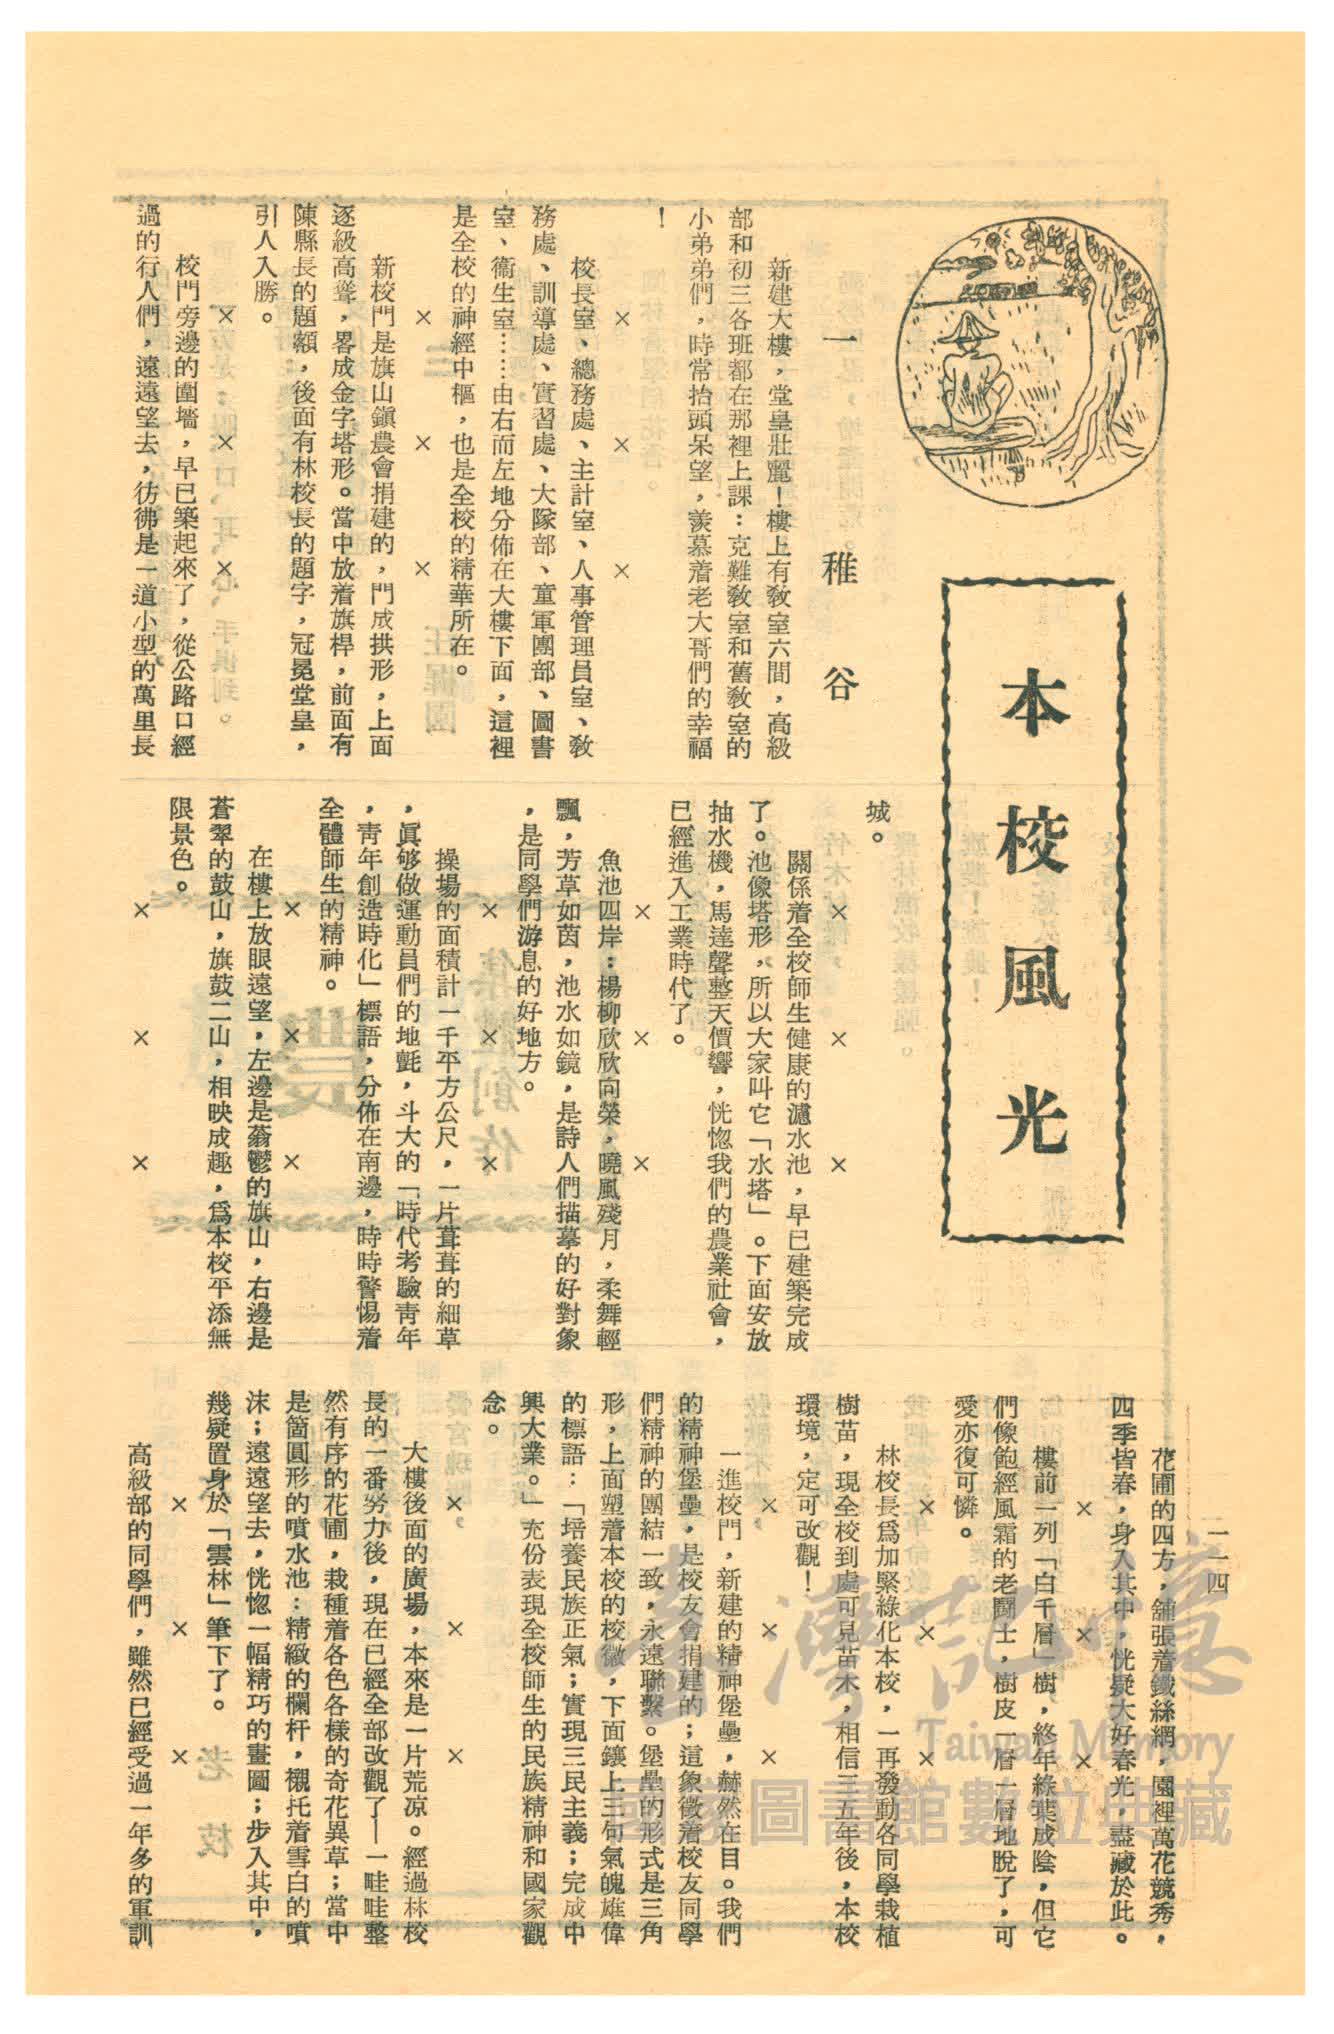 本校風光
一 稚谷
新建大樓,堂皇壯麗!樓上有敎室六間,高級
部和初三各班都在那裡上課:克難敎室和舊敎室的
小弟弟們,時常抬頭呆望,羨慕着老大哥們的幸福
!
× × ×
校長室、總務處、主計室、人事管理員室、敎
務處、訓導處、實習處、大隊部、童軍團部、圖書
室、衞生室……由右而左地分佈在大樓下面,這裡
是全校的神經中樞,也是全校的精華所在。
× × ×
新校門是旗山鎭農會捐建的,門成拱形,上面
逐級高聳,畧成金字塔形。當中放着旗桿,前面有
陳縣長的題額,後面有林校長的題字,冠冕堂皇,
引人入勝。
× × ×
校門旁邊的圍墻,早已築起來了,從公路口經
過的行人們,遠遠望去,彷彿是一道小型的萬里長
城。
× × ×
關係着全校師生健康的濾水池,早已建築完成
了。池像塔形,所以大家叫它「水塔」。下面安放
抽水機,馬達聲整天價響,恍惚我們的農業社會,
已經進入工業時代了。
× × ×
魚池四岸:楊柳欣欣向榮,曉風殘月,柔舞輕
飄,芳草如茵,池水如鏡,是詩人們描摹的好對象
,是同學們游息的好地方。
× × ×
操場的面積計一千平方公尺,一片葺葺的細草
,眞够做運動員們的地氈,斗大的「時代考驗靑年
,靑年創造時化」標語,分佈在南邊,時時警惕着
全體師生的精神。
× × ×
在樓上放眼遠望,左邊是蓊鬱的旗山,右邊是
蒼翠的鼓山,旗鼓二山,相映成趣,爲本校平添無
限景色。
× × ×
花圃的四方,舖張着鐵絲網,園裡萬花競秀,
四季皆春,身入其中,恍疑大好春光,盡藏於此。
× × ×
樓前一列「白千層」樹,終年綠葉成陰,但它
們像飽經風霜的老鬪士,樹皮一層一層地脫了,可
愛亦復可憐。
× × ×
林校長爲加緊綠化本校,一再發動各同學栽植
樹苗,現全校到處可見苗木,相信三五年後,本校
環境,定可改觀!
× × ×
一進校門,新建的精神堡壘,赫然在目。我們
的精神堡壘,是校友會捐建的;這象徵着校友同學
們精神的團結一致,永遠聯繫。堡壘的形式是三角
形,上面塑着本校的校徽,下面鑲上三句氣魄雄偉
的標語:「培養民族正氣;實現三民主義;完成中
興大業。」充份表現全校師生的民族精神和國家觀
念。
× × ×
大樓後面的廣場,本來是一片荒凉。經過林校
長的一番努力後,現在已經全部改觀了——一畦畦整
然有序的花圃,栽種着各色各樣的奇花異草;當中
是箇圓形的噴水池:精緻的欄杆,襯托着雪白的噴
沫;遠遠望去,恍惚一幅精巧的畫圖;步入其中,
幾疑置身於「雲林」筆下了。
× × ×
高級部的同學們,雖然已經受過一年多的軍訓
一一四
臺灣記憶
Taiwan Memory
國家圖書館數位典藏